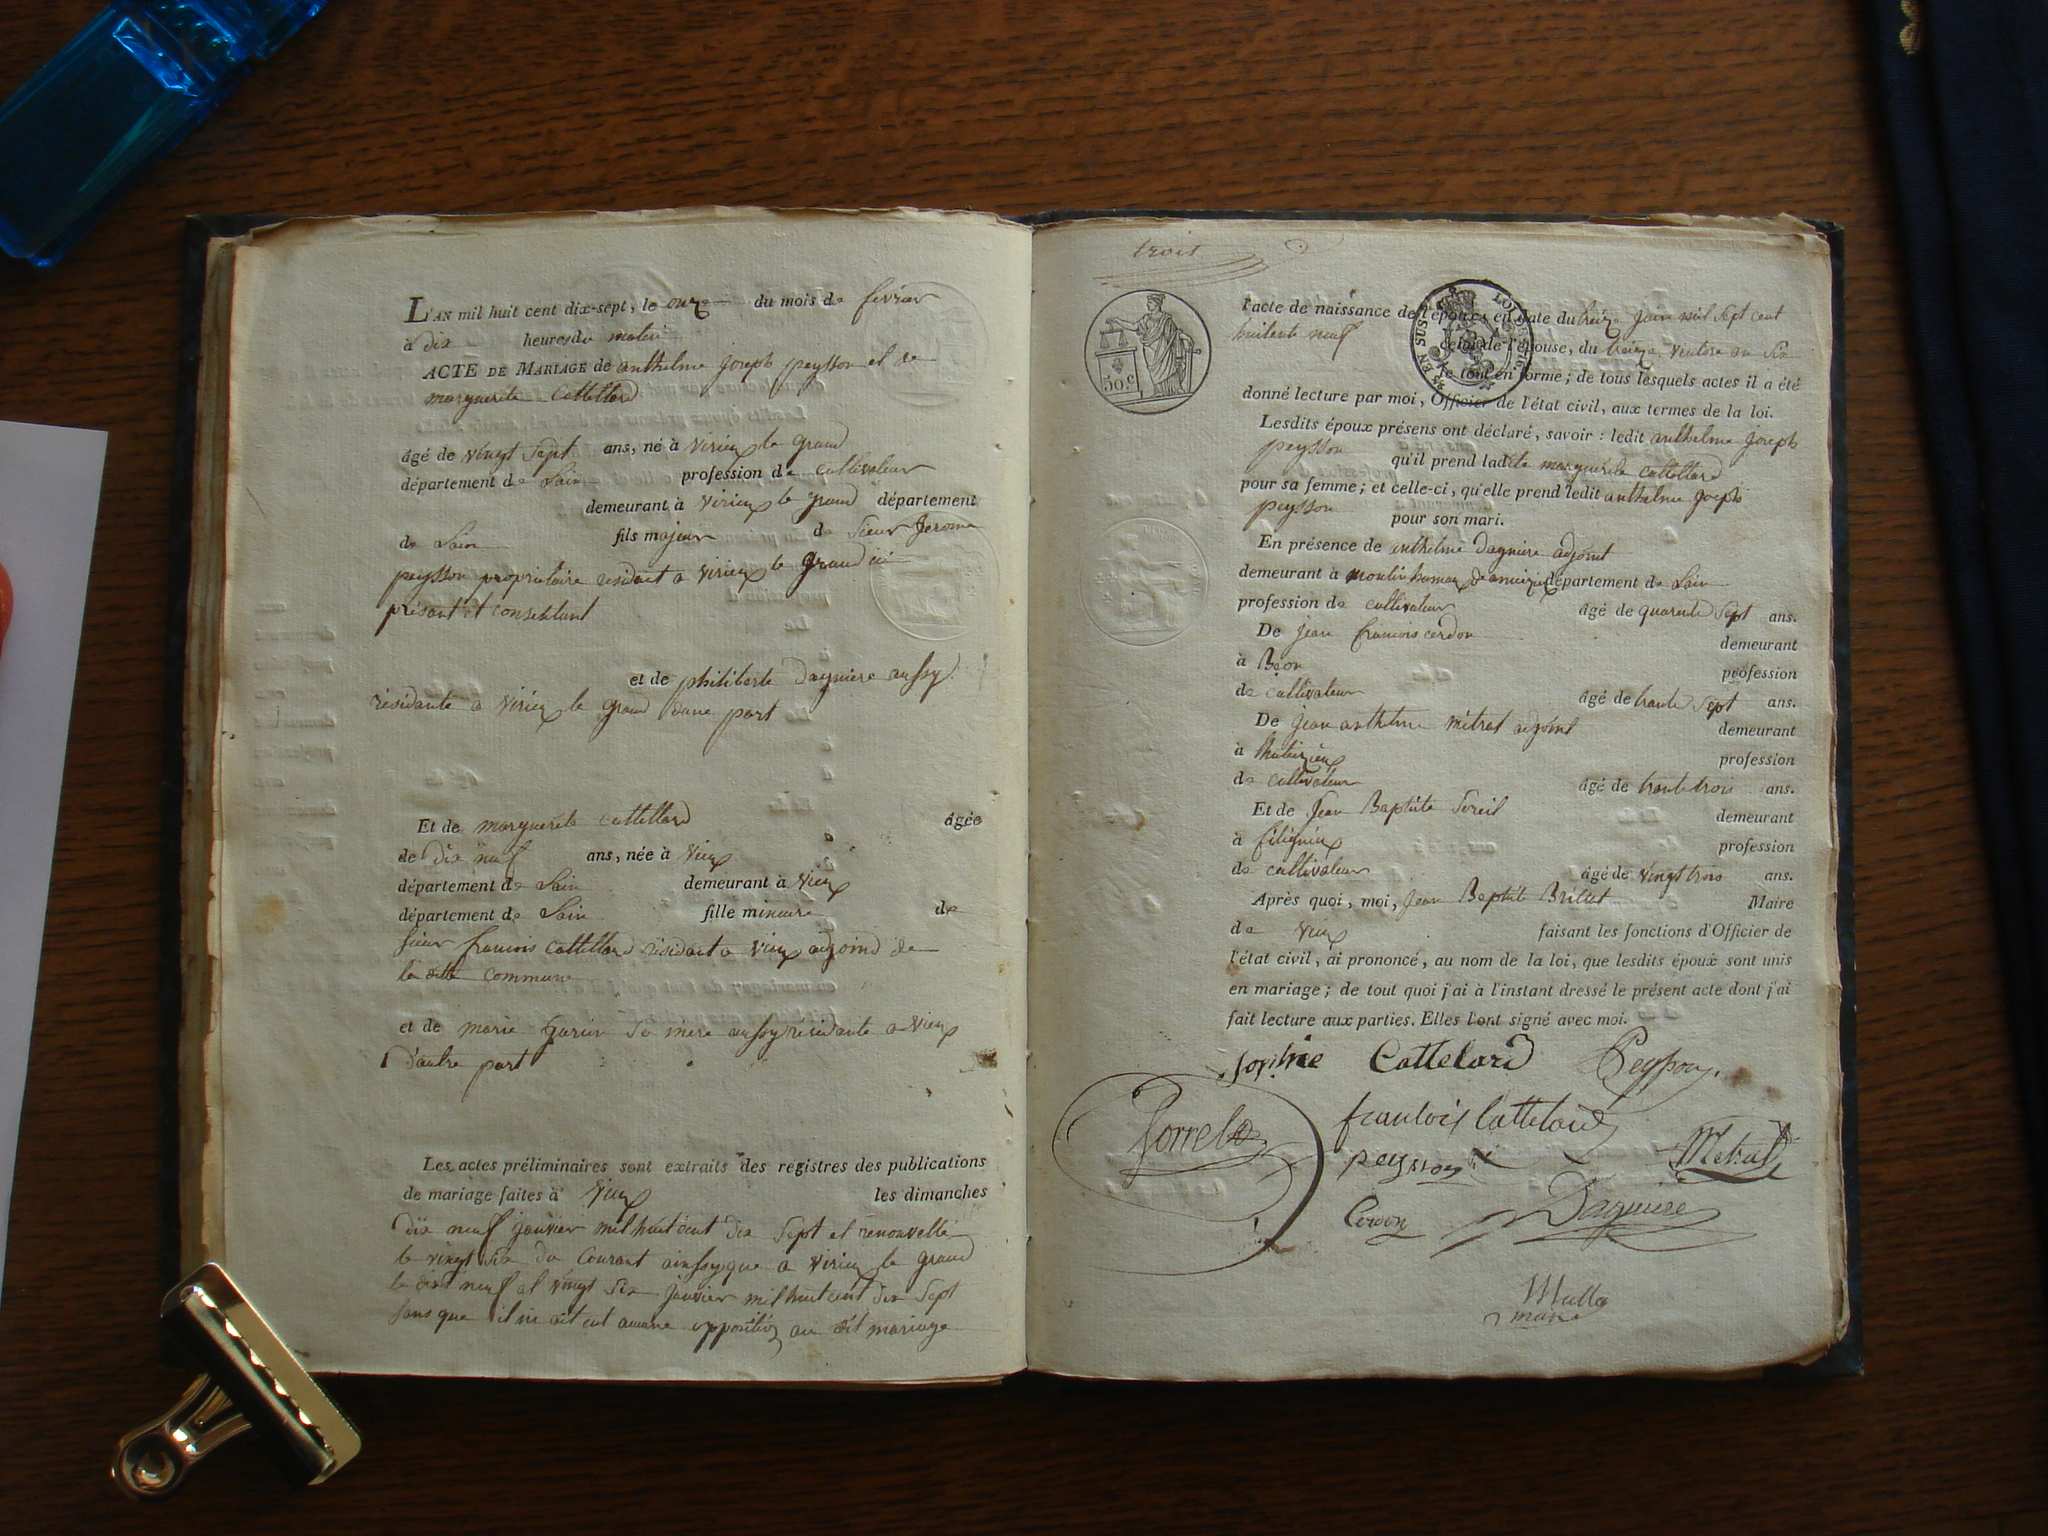 L'AN mil huit cent dix-sept, le onze du mois de fevrier
à dix heures du matin
ACTE DE MARIAGE de anthelme joseph peysson et de
marguerite Cattellard
âgé de vingt sept ans, né à virieu le grand
département de Lain profession de cultivateur
demeurant à virieu le grand département
de Lain fils majeur de sieur Jerome
peysson propriétaire résidant a virieu le grand ici
présant et consentant
et de philiberte dagniere aussy
résidante a virieu le grand dune part
Et de marguerite cattellard âgée
de dix neuf ans, née à vieu
département de Lain demeurant à vieu
département de Lain fille mineure de
sieur francois cattellard résidant a vieu adjoind de
la ditte commune
et de marie sa mere aussy résidante a vieu
d'autre part
Les actes préliminaires sont extraits des registres des publications
de mariage faites à vieu les dimanches
dix neuf janvier mil huit cent dix sept et renouvellé
le vingt six du courant ainssy que a virieu le grand
le dix neuf et vingt six janvier mil huit cent dix sept
sans que il ni ait eut aucune opposition au dit mariage
trois
50 c
LOI
EN SUS
l'acte de naissance de l'époux, en date du treize juin mil sept cent
huitante neuf
celui de l'épouse, du treize ventose an six
le tout en forme ; de tous lesquels actes il a été
donné lecture par moi, Officier de l'état civil, aux termes de la loi.
Lesdits époux présens ont déclaré, savoir : ledit anthelme joseph
peysson qu'il prend ladite marguerite cattellard
pour sa femme ; et celle-ci, qu'elle prend ledit anthelme joseph
peysson pour son mari.
En présence de anthelme dagniere adjoint
demeurant à moulin département de Lain
profession de cultivateur âgé de quarente sept ans.
De jean francois cerdon demeurant
à Béon profession
de cultivateur âgé de trante sept ans.
De jean anthelme métral adjoint demeurant
à profession
de cultivateur âgé de trante trois ans.
Et de Jean Baptiste demeurant
à profession
de cultivateur âgé de vingt trois ans.
Après quoi, moi, Jean Baptiste Brillat Maire
de vieu faisant les fonctions d'Officier de
l'état civil, ai prononcé, au nom de la loi, que lesdits époux sont unis
en mariage ; de tout quoi j'ai à l'instant dressé le présent acte dont j'ai
fait lecture aux parties. Elles l'ont signé avec moi.
sophie Cattelard Peysson
francois Cattelard
peysson Métral
Cerdon Dagniere